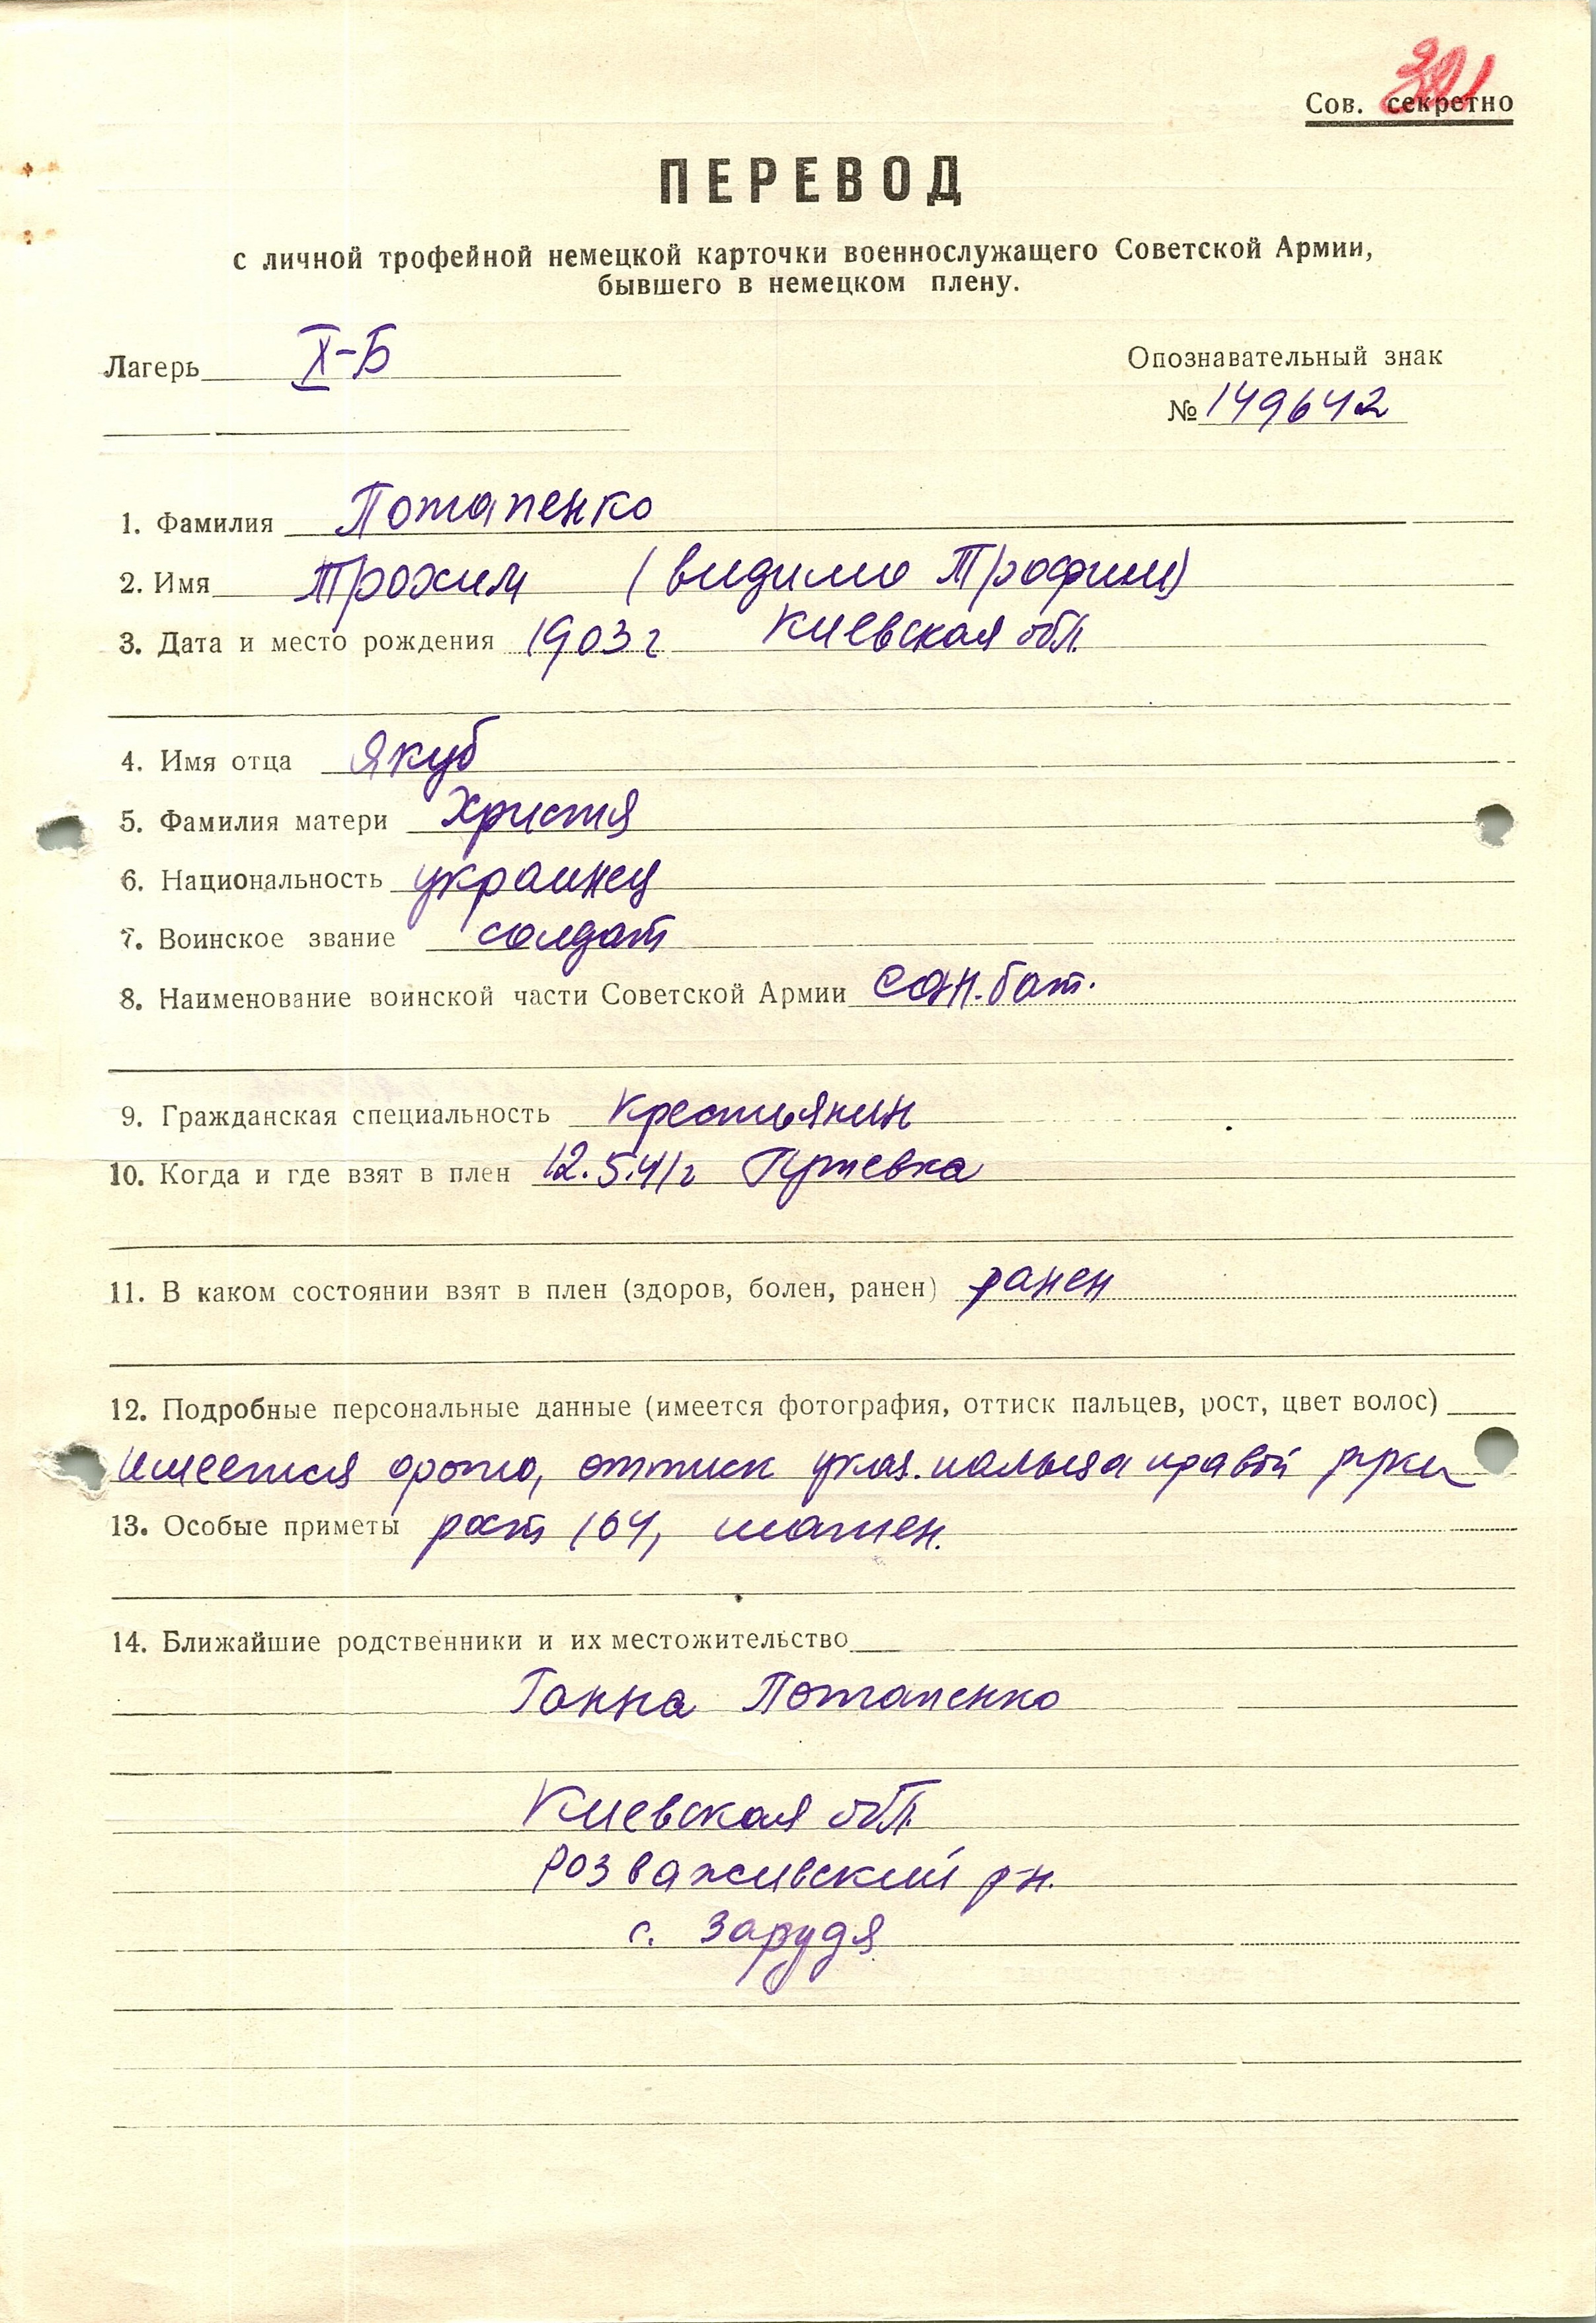 391
Сов. секретно
ПЕРЕВОД
с личной трофейной немецкой карточки военнослужащего Советской Армии,
бывшего в немецком плену.
Лагерь X-Б
Опознавательный знак
№ 149642
1. Фамилия Потапенко
2. Имя Трохим (видимо Трофим)
3. Дата и место рождения 1903 г Киевская обл.
4. Имя отца Якуб
5. Фамилия матери Христя
6. Национальность украинец
7. Воинское звание солдат
8. Наименование воинской части Советской Армии сан. бат.
9. Гражданская специальность крестьянин
10. Когда и где взят в плен 12.5.41 г
11. В каком состоянии взят в плен (здоров, болен, ранен) ранен
12. Подробные персональные данные (имеется фотография, оттиск пальцев, рост, цвет волос)
имеется фото, оттиск указ. пальца правой руки
13. Особые приметы рост 164, шатен.
14. Ближайшие родственники и их местожительство
Ганна Потапенко
Киевская обл.
Розваживский р-н.
с. Зарудя